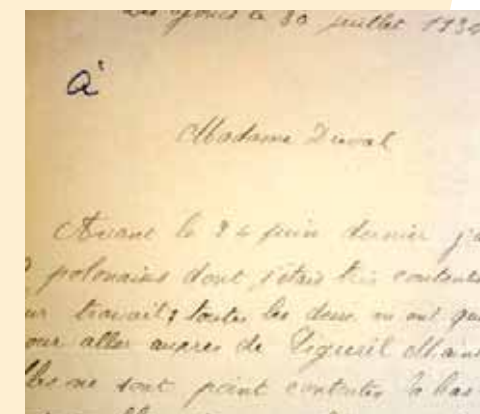 le 30 juillet 193
à
Madame Duval
Avant le 24 juin dernier j'a
polonaises dont j'étais très contente
travail; toutes les deux m'ont qu
our aller auprès de Ligueil
lles ne sont point contentes là bas